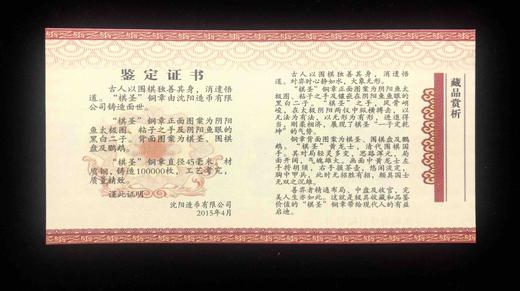 鉴定证书
古人以围棋独善其身，消遣悟
道。“棋圣”铜章由沈阳造币有限
公司铸造面世。
“棋圣”铜章正面图案为阴阳鱼
太极图、粘子之手及阴阳鱼眼的
黑白二子。背面图案为棋圣、围棋
盘及鹦鹉。
“棋圣”铜章直径45毫米，材
质铜，铸造100000枚，工艺考究，
质量精致。
谨此证明
沈阳造币有限公司
2015年4月
藏品赏析
古人以围棋独善其身，消遣悟
道。对弈时心静如水，大象无形。
“棋圣”铜章正面图案为阴阳鱼太
极图、粘子之手及镶嵌在阴阳鱼鱼眼的
黑白二子。“棋圣”之手，风骨峭
峻，在太极阴阳两仪中纵横搏击，以
无法为有法，以无形为有形，进退得
当，刚柔相济，展现了棋圣“一子定乾
坤”的气势。
铜章背面图案为棋圣、围棋盘及鹦
鹉。“棋圣”黄龙士，清代围棋国
手。其对局轻灵多变，思路深远，局
面开阔，气魄雄大。画面中黄龙士左
手持棋，右手摇茶壶，悠闲淡定，
胸中甲兵，此时无招胜有招，颇具国士
无双之沉雄。
善弈者精通布局，中盘及收官，完
美人生亦如此。这就是极具收藏和品鉴
价值的“棋圣”铜章带给现代人的有益
启迪。